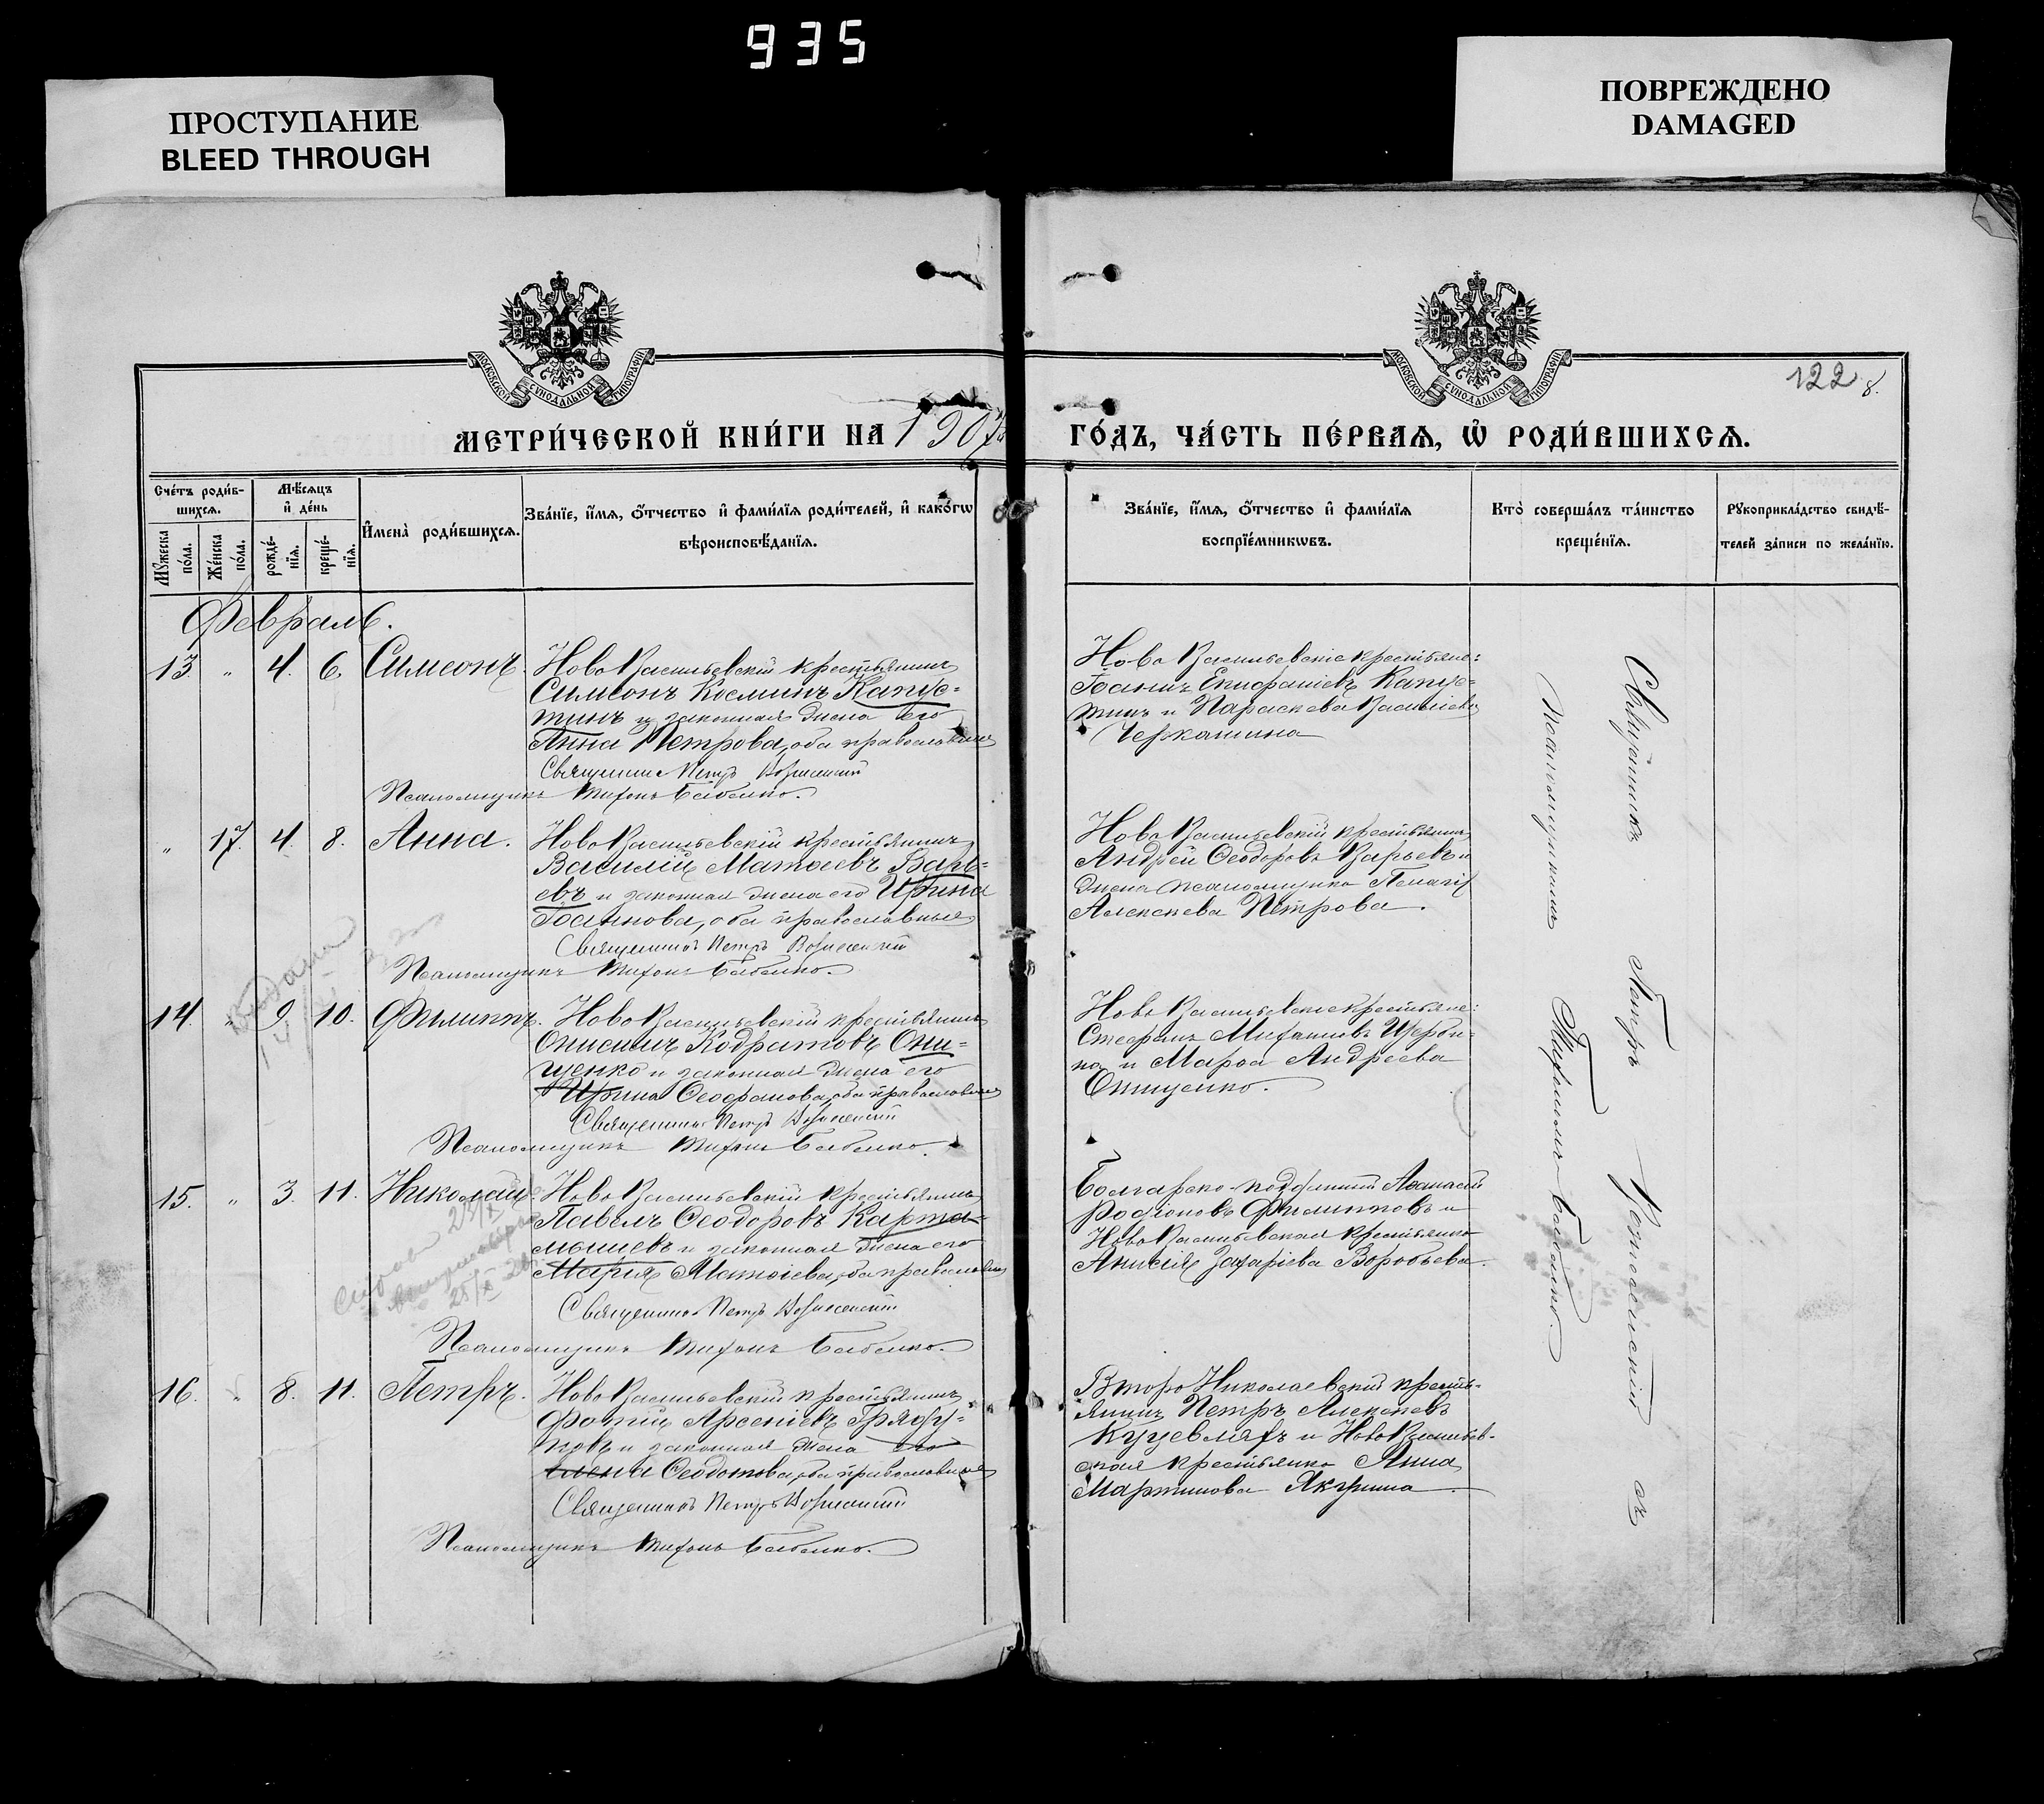 935
ПРОСТУПАНИЕ
BLEED THROUGH
ПОВРЕЖДЕНО
DAMAGED
МОСКОВСКОЙ СУНОДАЛЬНОЙ ТИПОГРАФІИ
МОСКОВСКОЙ СУНОДАЛЬНОЙ ТИПОГРАФІИ
122
8.
МЕТРИ́ЧЕСКОЙ КНИ́ГИ НА 1907
ГО́ДЪ, ЧА́СТЬ ПЕ́РВАѦ, Ѡ҆ РОДИ́ВШИХСѦ.
Сче́тъ роди́в-
шихсѧ.
Мꙋ́жеска по́ла.
Же́нска по́ла.
Мѣ́сѧцъ
и҆ де́нь
рожде́-
нїѧ.
креще́-
нїѧ.
И҆мена̀ роди́вшихсѧ.
Зва́нїе, и҆́мѧ, ѻ҆́тчество и҆ фами́лїѧ роди́телей, и҆ како́гѡ
вѣроисповѣ́данїѧ.
Зва́нїе, и҆́мѧ, ѻ҆́тчество и҆ фами́лїѧ
воспрїе́мникѡвъ.
Кто̀ соверша́лъ та́инство
креще́нїѧ.
Рꙋкоприкла́дство свидѣ́-
телей за́писи по жела́нїю.
Февраль.
13. " 4. 6. Симеонъ. Ново Васильевскій крестьянинъ
Симеонъ Косминъ Капус-
тинъ и законная жена его
Анна Петрова, оба православные
Священникъ Петръ Вознесенскій
Псаломщикъ Тихонъ Бабенко.
Ново Васильевскіе крестьяне:
Іоаннъ Епифаніевъ Капус-
тинъ и Параскева Васильева
Черкашина
" 17. 4. 8. Анна. Ново Васильевскій крестьянинъ
Василій Матѳеевъ Варь-
евъ и законная жена его Ирина
Іоаннова, оба православные
Священникъ Петръ Вознесенскій
Псаломщикъ Тихонъ Бабенко.
Ново Васильевскій крестьянинъ
Андрей Ѳеодоровъ Варьевъ и
жена псаломщика Пелагія
Алексеева Петрова.
14. " 9. 10. Филиппъ. Ново Васильевскій крестьянинъ
Онисимъ Кодратовъ Они-
щенко и законная жена его
Ирина Ѳеофанова, оба православные
Священникъ Петръ Вознесенскій
Псаломщикъ Тихонъ Бабенко.
Ново Васильевскіе крестьяне:
Стефанъ Михаиловъ Щерби-
на и Марѳа Андреева
Онищенко.
15. " 3. 11. Николай. Ново Васильевскій крестьянинъ
Павелъ Ѳеодоровъ Карта-
мышевъ и законная жена его
Марія Матѳіева, оба православные
Священникъ Петръ Вознесенскій
Псаломщикъ Тихонъ Бабенко.
Болгарско-подданный Аѳанасій
Родіоновъ Филипповъ и
Ново Васильевская крестьянка
Анисія Захаріева Воробьева.
16. " 8. 11. Петръ. Ново Васильевскій крестьянинъ
Фотій Арсеніевъ Гряду-
новъ и законная жена его
Елена Ѳеодотова, оба православные
Священникъ Петръ Вознесенскій
Псаломщикъ Тихонъ Бабенко.
Второ Николаевскій кресть-
янинъ Петръ Алексеевъ
и Ново Васильев-
ская крестьянка Анна
Мартинова Якунина
Священникъ Петръ Вознесенскій съ
псаломщикомъ Тихономъ Бабенко.